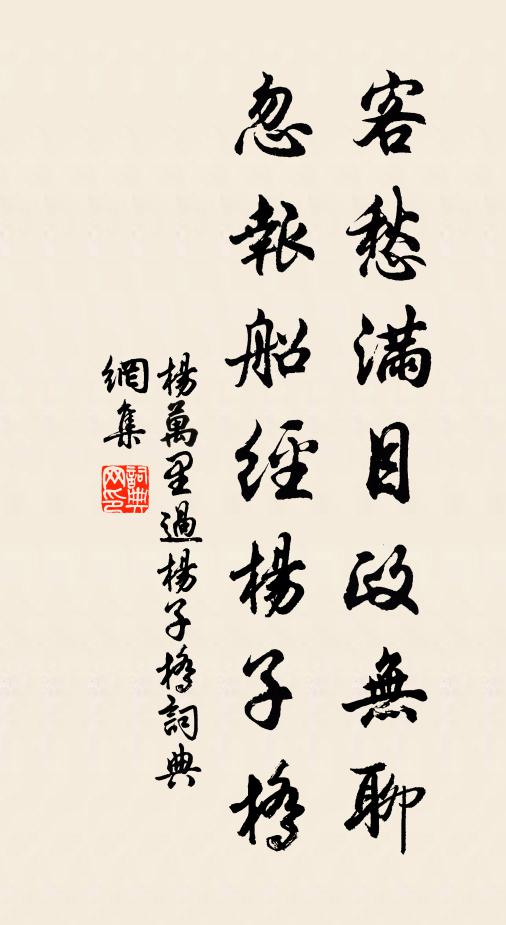 客愁滿目政無聊
忽報船經楊子橋
楊萬里過楊子橋詞典
網集
詞典
网印